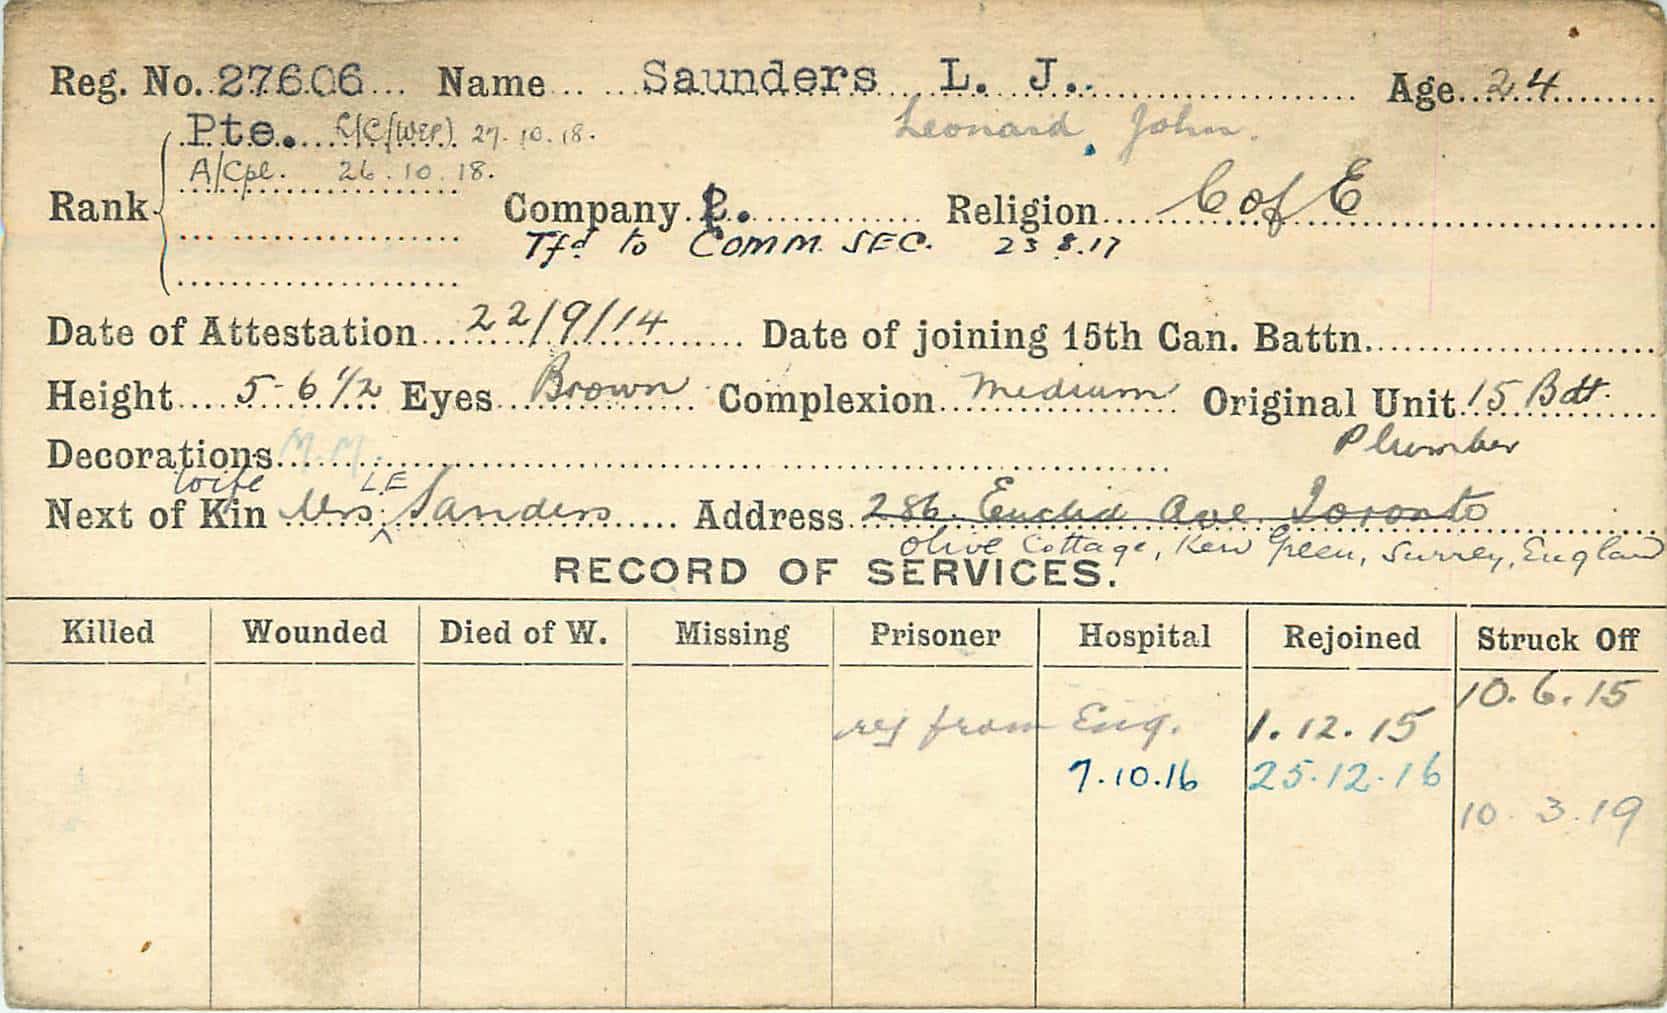 Reg. No. 27606 Name Saunders L. J. Age 24
Pte. L/C (WEP) 27.10.18. Leonard John.
A/Cpl. 26.10.18.
Rank Company Religion C of E
Tfd to Comm. SEC. 23 8.17
Date of Attestation 22/9/14 Date of joining 15th Can. Battn.
Height 5-6 1/2 Eyes Brown Complexion Medium Original Unit 15 Batt.
Decorations M.M. Plumber
wife L.E
Next of Kin Mrs. Sanders Address 286 Euclid Ave Toronto
Olive Cottage, Kew Green, Surrey, England
RECORD OF SERVICES.
Killed Wounded Died of W. Missing Prisoner Hospital Rejoined Struck Off
10.6.15
from Eng. 1.12.15
7.10.16 25.12.16
10 3.19